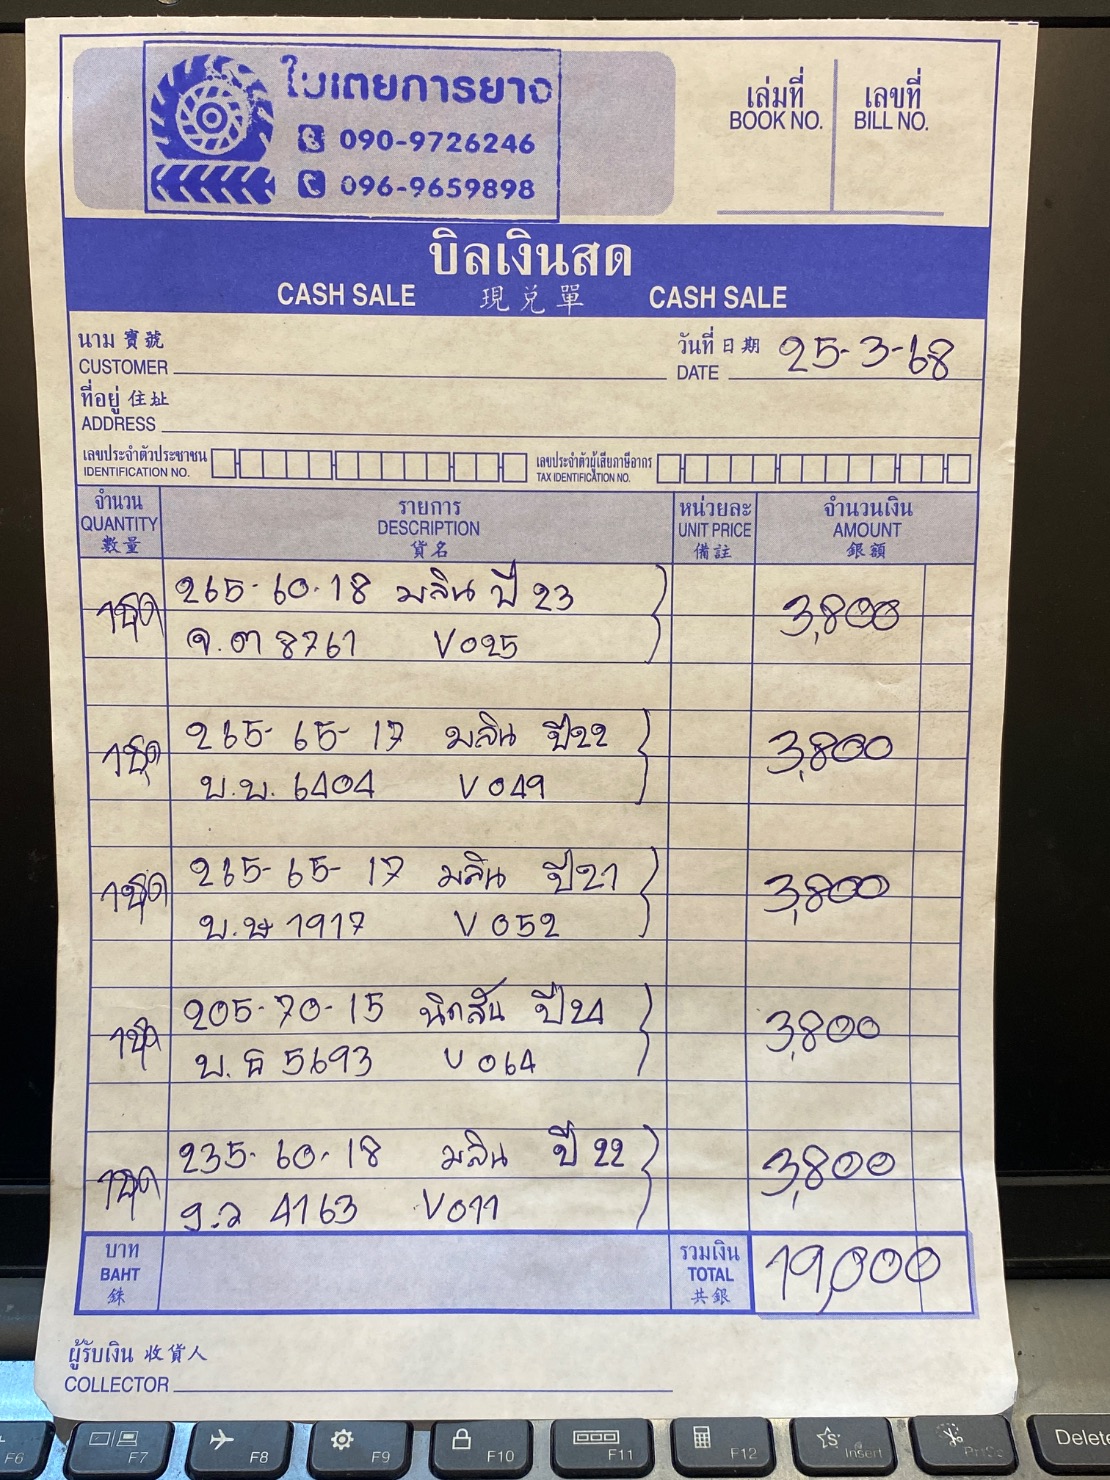 ใบเตยการยาง
090-9726246
096-9659898
เล่มที่ เลขที่
BOOK NO. BILL NO.
บิลเงินสด
CASH SALE 現兌單 CASH SALE
นาม 寶號 วันที่ 日期 25-3-68
CUSTOMER DATE
ที่อยู่ 住址
ADDRESS
เลขประจำตัวประชาชน เลขประจำตัวผู้เสียภาษีอากร
IDENTIFICATION NO. TAX IDENTIFICATION NO.
จำนวน รายการ หน่วยละ จำนวนเงิน
QUANTITY DESCRIPTION UNIT PRICE AMOUNT
數量 貨名 備註 銀額
1ชุด 265-60-18 มลิน ปี 23 3,800
จ.ต 8761 V025
1ชุด 265-65-17 มลิน ปี22 3,800
บ.บ. 6404 V049
1ชุด 265-65-17 มลิน ปี21 3,800
บ.ษ 1917 V052
1ชุด 205-70-15 ปี24 3,800
บ.ธ 5693 V064
1ชุด 235-60-18 มลิน ปี 22 3,800
4163 V011
บาท รวมเงิน
BAHT TOTAL 19,000
銖 共銀
ผู้รับเงิน 收貨人
COLLECTOR
F6 F7 F8 F9 F10 F11 F12 Insert PrtSc Delete